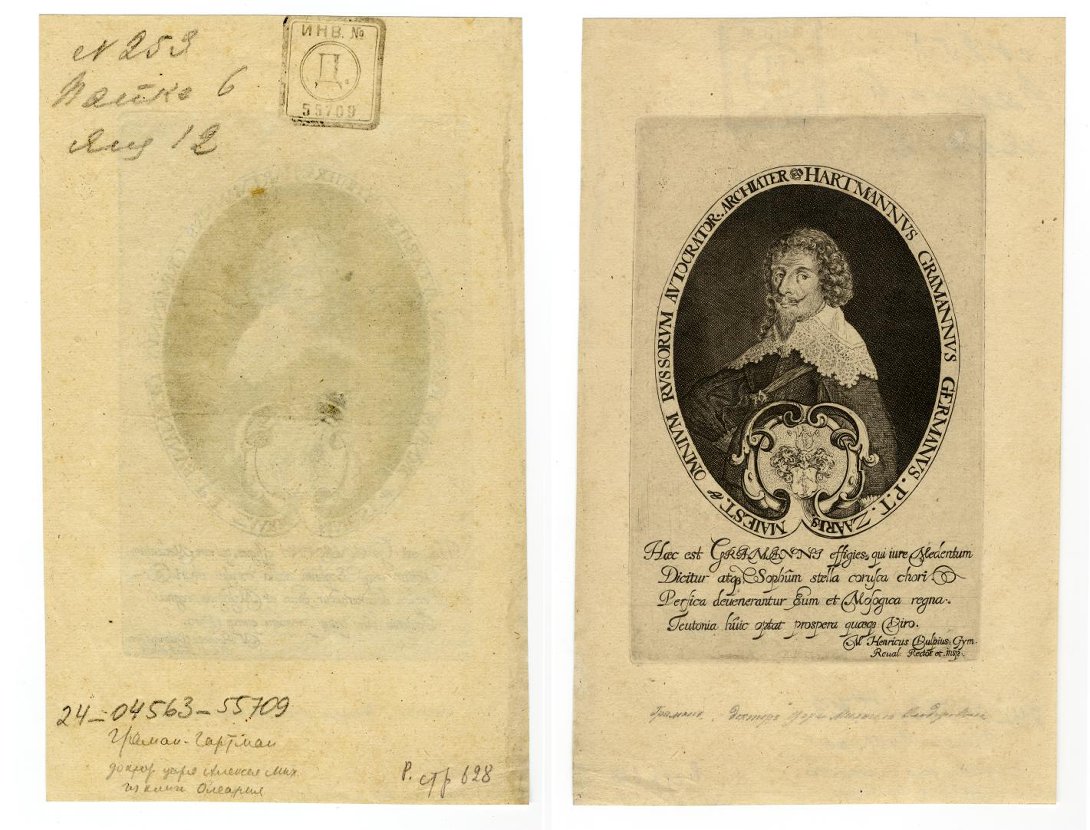 N 253
Папка 6
Ящ 12
ИНВ. №
Д.
55709
24-04563-55709
Граман-Гартман
доктор царя Алексея Мих
из книги Олеария
Р. стр 628
HARTMANNVS GRAMANNVS GERMANVS. P.T. ZAARIS MAIEST. OMNIVM RVSSORVM AVTOCRATOR. ARCHIATER
Hæc est GRAMANNI effigies, qui iure Medentum
Dicitur atqꝫ Sophûm stella corusca chori
Persica devenerantur Eum et Mosgoica regna.
Teutonia huic optat prospera quæqꝫ Viro.
M. Henricus Vulpius Gym.
Reval. Rector et insp.
Граманъ, докторъ царя Михаила Феодоровича